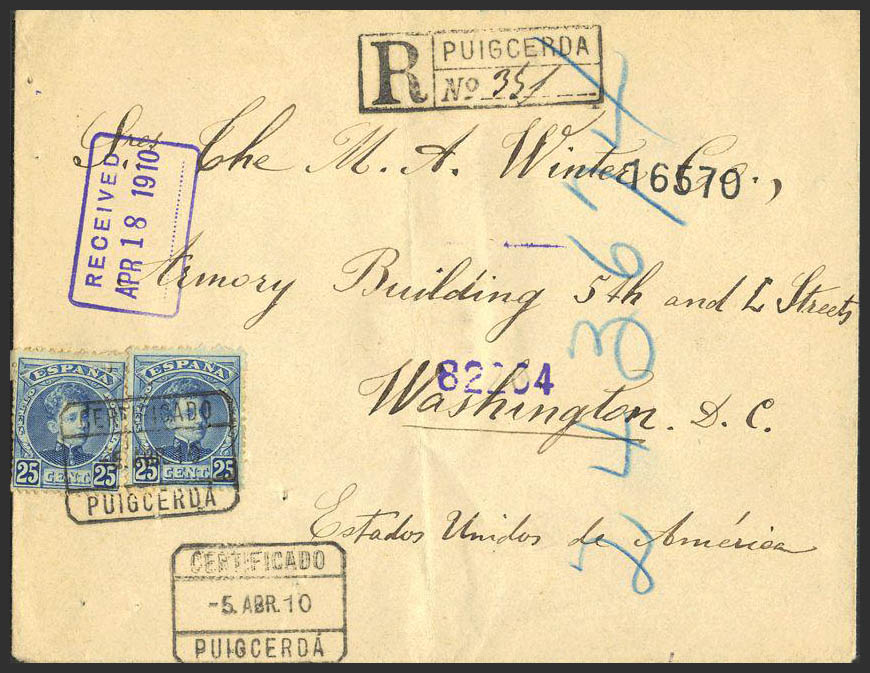 R PUIGCERDA
Nº 351
Sres The M. A. Winter Co.,
16570
RECEIVED
APR 18 1910
Armory Building 5th and L Streets
82204
Washington. D. C.
Estados Unidos de América
243674
ESPAÑA
25 CENT. 25
ESPAÑA
25 CENT. 25
CERTIFICADO
PUIGCERDÁ
CERTIFICADO
-5. ABR. 10
PUIGCERDÁ